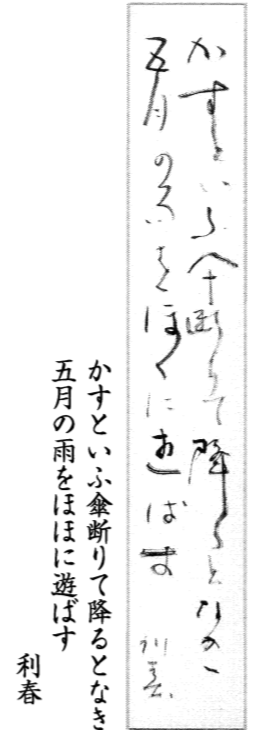 かすといふ傘断りて降るとなき
五月の雨をほほに遊ばす
利春
かすといふ傘断りて降るとなき
五月の雨をほほに遊ばす
利春